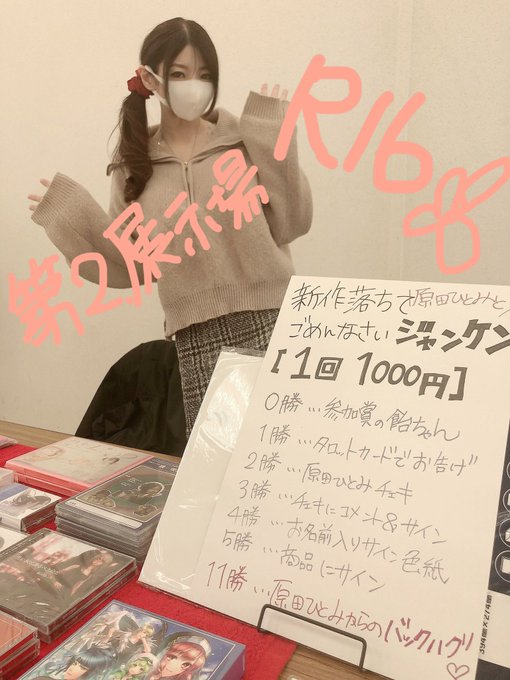 R16
第2展示場
新作落ちで原田ひとみと
ごめんなさいジャンケン
[1回 1000円]
0勝…参加賞の飴ちゃん
1勝…タロットカードでお告げ
2勝…原田ひとみチェキ
3勝…チェキにコメント&サイン
4勝…お名前入りサイン色紙
5勝…商品にサイン
11勝…原田ひとみからのバックハグ♡